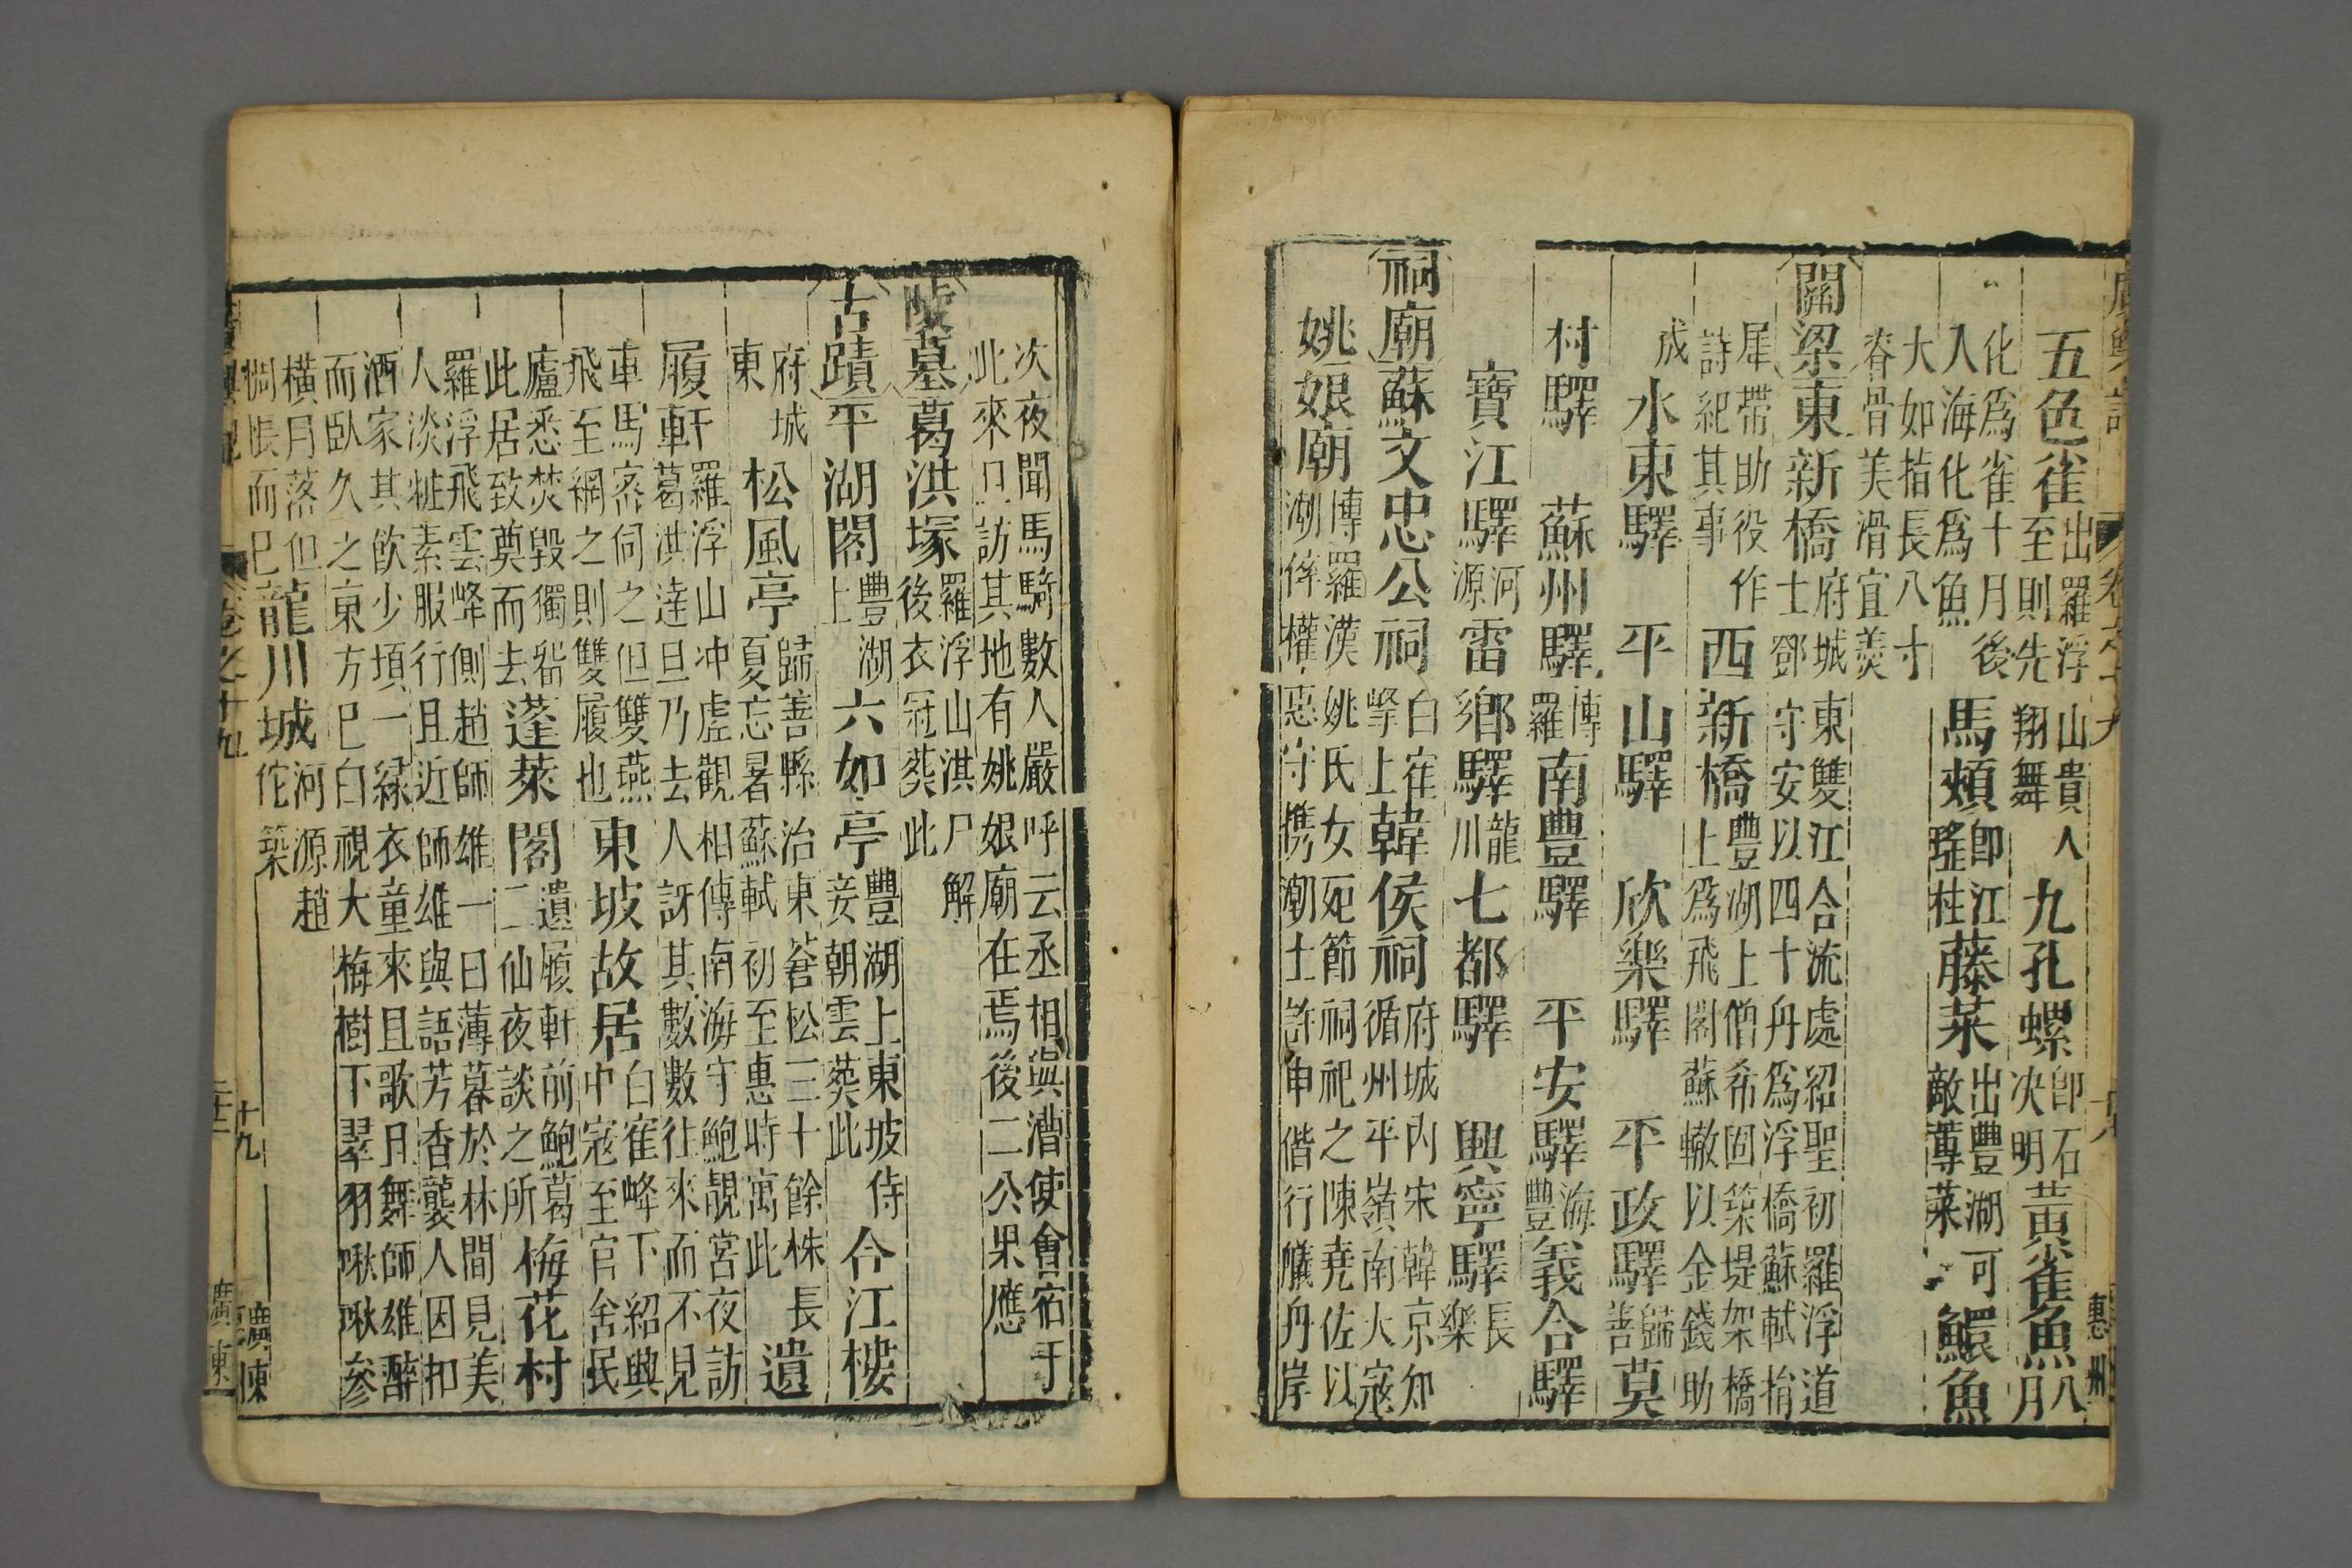 廣輿記 卷之十九 十八 惠州
五色雀出羅浮山貴人至則先翔舞九孔螺即石决明黃雀魚八月
化爲雀十月後入海化爲魚馬頰即江瑤柱藤菜出豐湖可敵蓴菜鱞魚
大如指長八寸脊骨美滑宜羹
關梁東新橋府城東雙江合流處紹聖初羅浮道士鄧守安以四十舟爲浮橋蘇軾捐
犀帶助役作詩紀其事西新橋豐湖上僧希固築堤架橋上爲飛閣蘇轍以金錢助
成水東驛 平山驛 欣樂驛 平政驛歸善莫
村驛 蘇州驛博羅南豐驛 平安驛海豐義合驛
寶江驛河源雷鄉驛龍川七都驛 興寧驛長樂
祠廟蘇文忠公祠白隺峯上韓侯祠府城內宋韓京知循州平嶺南大寇
姚娘廟博羅漢姚氏女死節祠祀之陳堯佐以潮倅權惠守携潮士許申偕行艤舟岸
次夜聞馬騎數人嚴呼云丞相與漕使會宿于此來日訪其地有姚娘廟在焉後二公果應
陵墓葛洪塚羅浮山洪尸解後衣冠葬此
古蹟平湖閣豐湖上六如亭豐湖上東坡侍妾朝雲葬此合江樓
府城東松風亭歸善縣治東蒼松三十餘株長夏忘暑蘇軾初至惠時寓此遺
履軒羅浮山冲虛觀相傳南海守鮑靚宮夜訪葛洪達旦乃去人訝其數數徃來而不見
車馬密伺之但雙燕飛至網之則雙履也東坡故居白隺峰下紹興中寇至官舍民
廬悉焚毀獨留此居致奠而去蓬萊閣遺履軒前鮑葛二仙夜談之所梅花村
羅浮飛雲峰側趙師雄一日薄暮於林間見美人淡粧素服行且近師雄與語芳香襲人因扣
洒家其飮少頃一綠衣童來且歌且舞師雄醉而臥久之東方已白視大梅樹下翠羽啾啾參
橫月落但惆悵而已龍川城河源趙佗築
卷之十九 十九 廣東